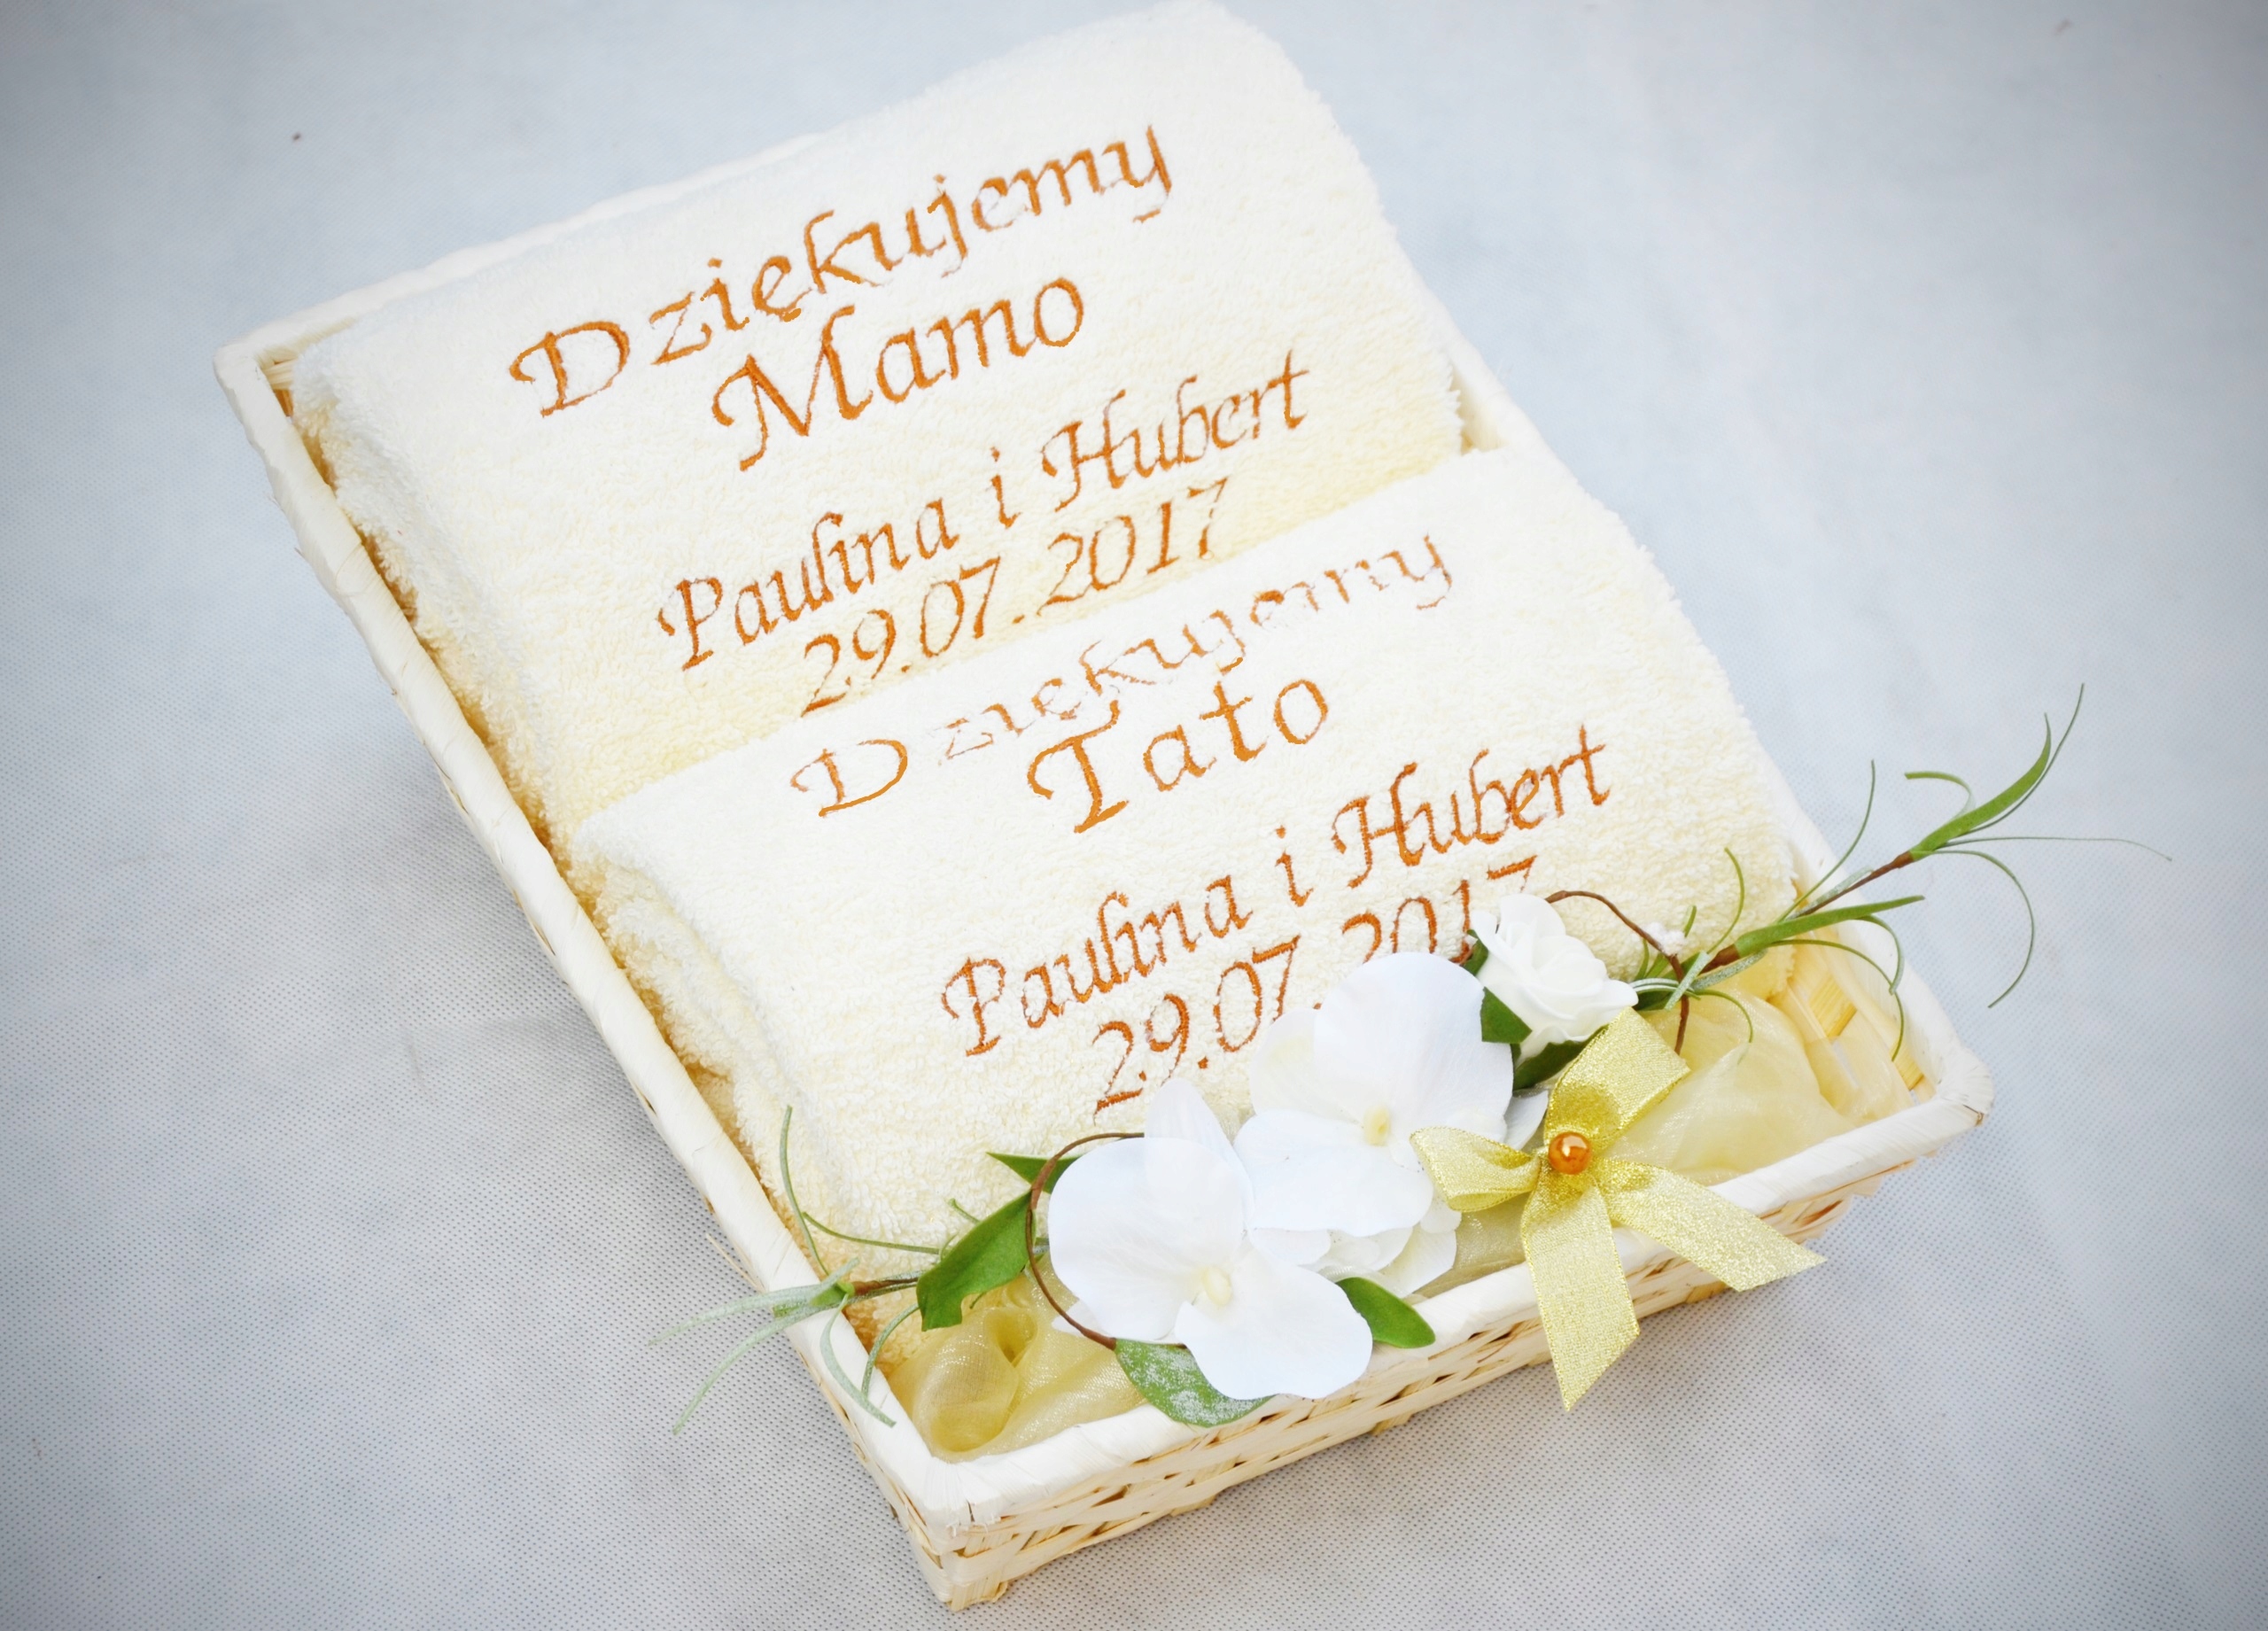 Dziękujemy
Mamo
Paulina i Hubert
29.07.2017
Dziękujemy
Tato
Paulina i Hubert
29.07.2017